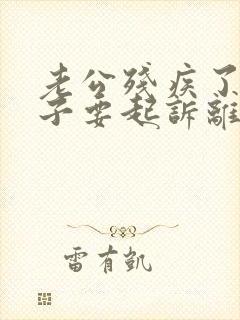 老公殘疾了
子要起訴離
雷有凱